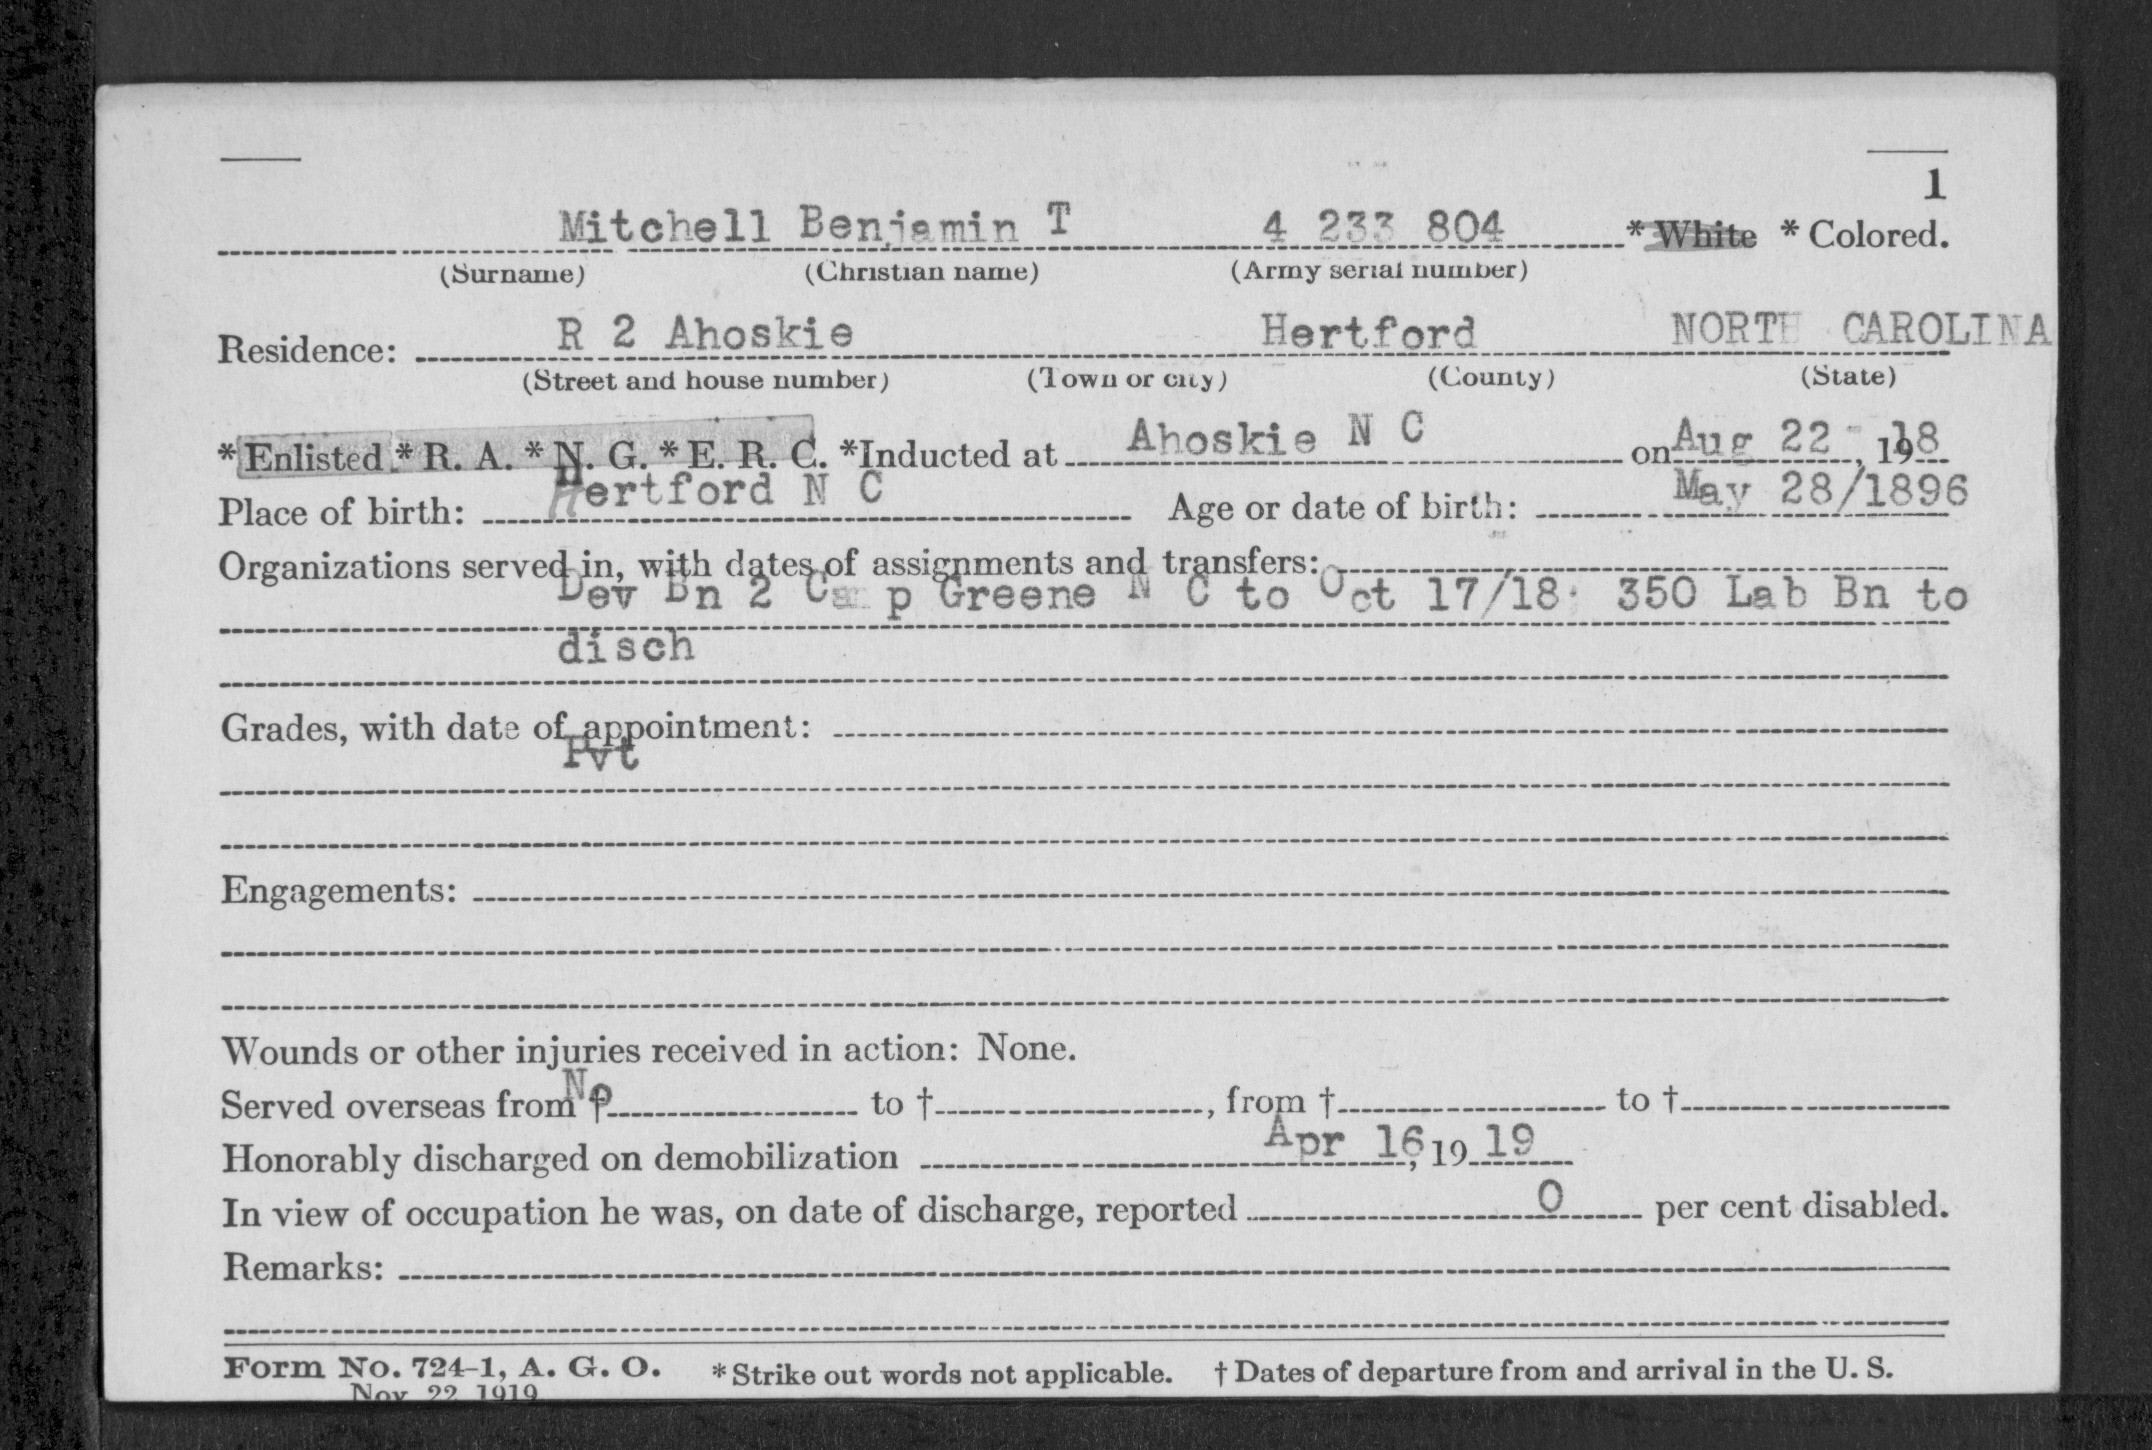 1
Mitchell Benjamin T 4 233 804 * White * Colored.
(Surname) (Christian name) (Army serial number)
Residence: R 2 Ahoskie Hertford NORTH CAROLINA
(Street and house number) (Town or city) (County) (State)
* Enlisted * R. A. * N. G. * E. R. C. *Inducted at Ahoskie N C on Aug 22 - , 1918
Place of birth: Hertford N C Age or date of birth: May 28/1896
Organizations served in, with dates of assignments and transfers:
Dev Bn 2 Camp Greene N C to Oct 17/18; 350 Lab Bn to
disch
Grades, with date of appointment:
Pvt
Engagements:
Wounds or other injuries received in action: None.
Served overseas from † No to †, from † to †
Honorably discharged on demobilization Apr 16, 19 19
In view of occupation he was, on date of discharge, reported 0 per cent disabled.
Remarks:
Form No. 724-1, A. G. O. * Strike out words not applicable. † Dates of departure from and arrival in the U. S.
Nov 22 1919